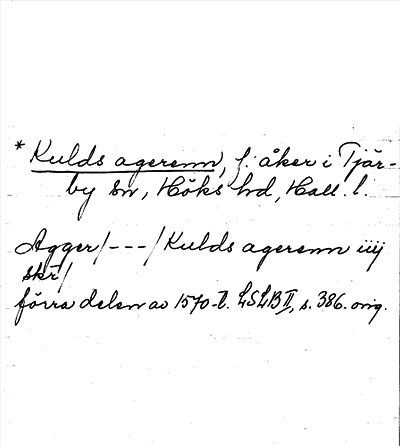 * Kulds agerenn, f. åker i Tjär-
by sn, Höks hd, Hall. l.
Agger/---/Kulds agerenn iiij
skr/
förra delen av 1570-t. LSLB II, s. 386. orig.